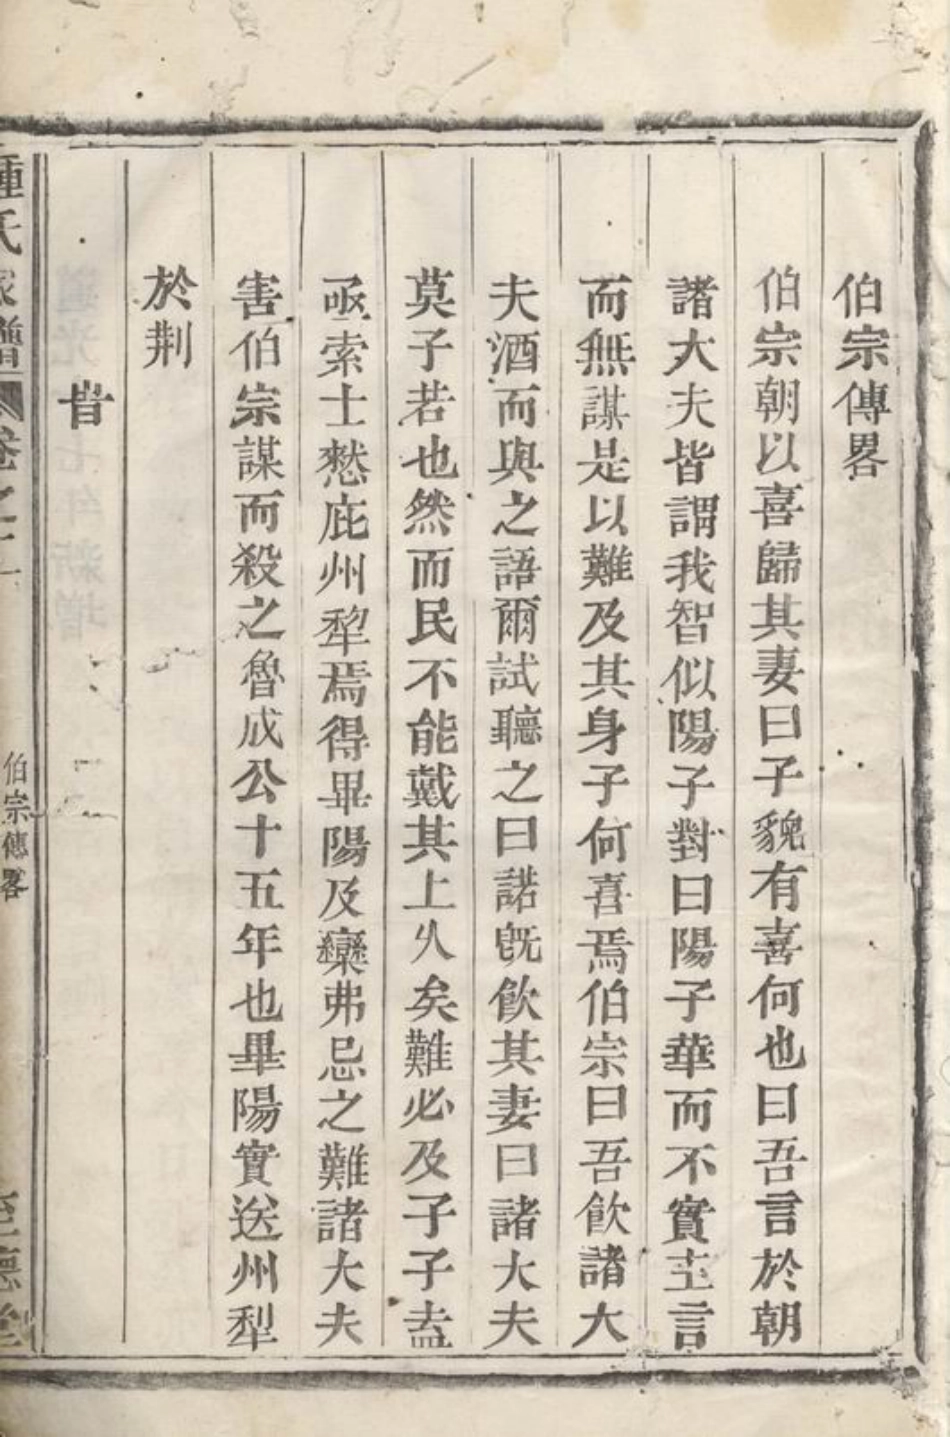 伯宗傳畧
伯宗朝以喜歸其妻曰子貌有喜何也曰吾言於朝
諸大夫皆謂我智似陽子對曰陽子華而不實主言
而無謀是以難及其身子何喜焉伯宗曰吾飲諸大
夫酒而與之語爾試聽之曰諾旣飲其妻曰諸大夫
莫子若也然而民不能戴其上乆矣難必及子子盍
亟索士憖庇州犂焉得畢陽及欒弗忌之難諸大夫
害伯宗謀而殺之魯成公十五年也畢陽實送州犁
於荆
昔
鍾氏家譜 卷之一 伯宗傳畧 至德堂